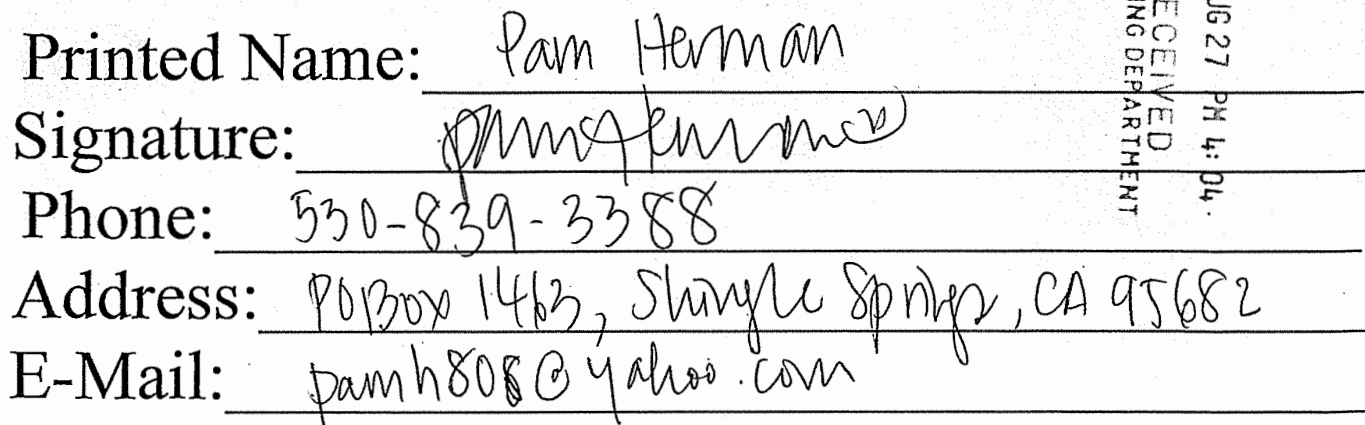 Printed Name: Pam Herman
Signature: Pam Herman
Phone: 530-839-3388
Address: PO Box 1463, Shingle Springs, CA 95682
E-Mail: pamh808@yahoo.com
UG 27 PM 4:04
ECEIVED
NG DEPARTMENT